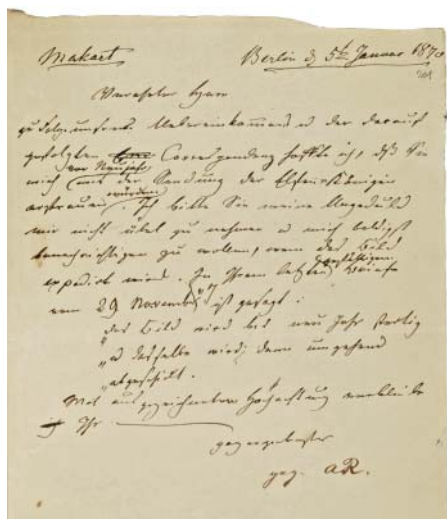 Makart
Berlin d 5ten Januar 1870
Verehrter Herr
zu Folge unsres Uebereinkommens u der darauf
gefolgten Correspondenz hoffte ich, daß Sie
vor Neujahr
mich mit der Sendung der Elfen-Königin
würden
erfreuen Ich bitte Sie meine Ungeduld
mir nicht übel zu nehmen u mich baldigst
benachrichtigen zu wollen, wenn das Bild
expedirt wird. In Ihrem letzten Briefe
vom 29 November ist gesagt:
„das Bild wird bis neu Jahr fertig
„u dasselbe wird dann umgehend
„abgeschickt.
Mit ausgezeichneter Hochachtung verbleibe
ich Ihr
ganz ergebenster
gez. aR.